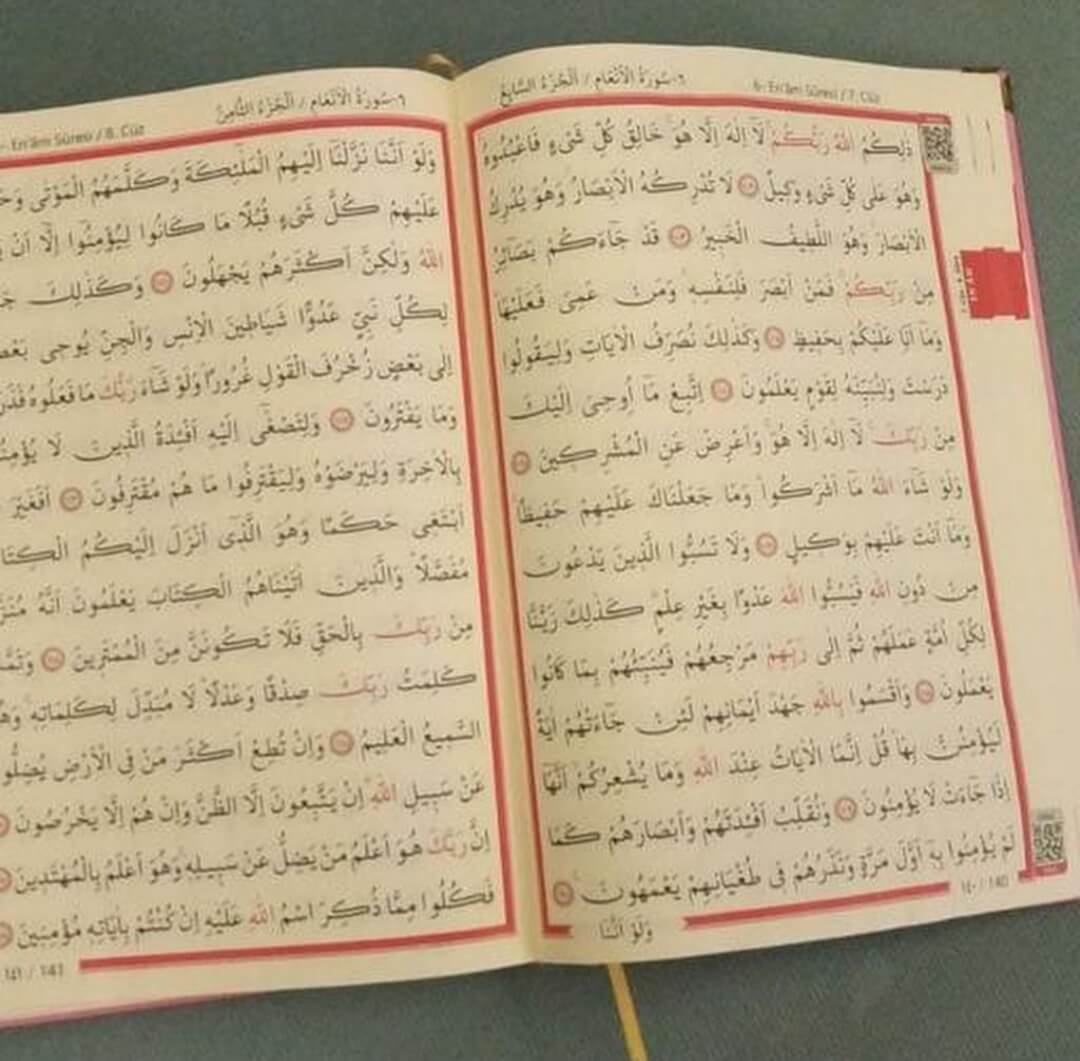 ٦-سُورَةُ الْاَنْعَامِ / اَلْجُزْءُ السَّابِعُ
6- En'âm Sûresi / 7. Cüz
ذٰلِكُمُ اللّٰهُ رَبُّكُمْۚ لَٓا اِلٰهَ اِلَّا هُوَۚ خَالِقُ كُلِّ شَىْءٍ فَاعْبُدُوهُۚ
وَهُوَ عَلٰى كُلِّ شَىْءٍ وَكِيلٌ ﴿١٠٢﴾ لَا تُدْرِكُهُ الْاَبْصَارُۘ وَهُوَ يُدْرِكُ
الْاَبْصَارَۚ وَهُوَ اللَّطِيفُ الْخَبِيرُ ﴿١٠٣﴾ قَدْ جَٓاءَكُمْ بَصَٓائِرُ
مِنْ رَبِّكُمْۚ فَمَنْ اَبْصَرَ فَلِنَفْسِهٖۚ وَمَنْ عَمِىَ فَعَلَيْهَاۜ
وَمَٓا اَنَا۬ عَلَيْكُمْ بِحَفِيظٍ ﴿١٠٤﴾ وَكَذٰلِكَ نُصَرِّفُ الْاٰيَاتِ وَلِيَقُولُوا
دَرَسْتَ وَلِنُبَيِّنَهُ لِقَوْمٍ يَعْلَمُونَ ﴿١٠٥﴾ اِتَّبِعْ مَٓا اُو۫حِىَ اِلَيْكَ
مِنْ رَبِّكَۚ لَٓا اِلٰهَ اِلَّا هُوَۚ وَاَعْرِضْ عَنِ الْمُشْرِكِينَ ﴿١٠٦﴾
وَلَوْ شَٓاءَ اللّٰهُ مَٓا اَشْرَكُواۜ وَمَا جَعَلْنَاكَ عَلَيْهِمْ حَفِيظًاۚ
وَمَٓا اَنْتَ عَلَيْهِمْ بِوَكِيلٍ ﴿١٠٧﴾ وَلَا تَسُبُّوا الَّذِينَ يَدْعُونَ
مِنْ دُونِ اللّٰهِ فَيَسُبُّوا اللّٰهَ عَدْوًا بِغَيْرِ عِلْمٍۜ كَذٰلِكَ زَيَّنَّا
لِكُلِّ اُمَّةٍ عَمَلَهُمْۖ ثُمَّ اِلٰى رَبِّهِمْ مَرْجِعُهُمْ فَيُنَبِّئُهُمْ بِمَا كَانُوا
يَعْمَلُونَ ﴿١٠٨﴾ وَاَقْسَمُوا بِاللّٰهِ جَهْدَ اَيْمَانِهِمْ لَئِنْ جَٓاءَتْهُمْ اٰيَةٌ
لَيُؤْمِنُنَّ بِهَاۜ قُلْ اِنَّمَا الْاٰيَاتُ عِنْدَ اللّٰهِ وَمَا يُشْعِرُكُمْۙ اَنَّهَٓا
اِذَا جَٓاءَتْ لَا يُؤْمِنُونَ ﴿١٠٩﴾ وَنُقَلِّبُ اَفْـِٔدَتَهُمْ وَاَبْصَارَهُمْ كَمَا
لَمْ يُؤْمِنُوا بِهٖٓ اَوَّلَ مَرَّةٍ وَنَذَرُهُمْ فِى طُغْيَانِهِمْ يَعْمَهُونَ ﴿١١٠﴾
وَلَوْ اَنَّنَا
١٤٠ / 140
٦-سُورَةُ الْاَنْعَامِ / اَلْجُزْءُ الثَّامِنُ
En'âm Sûresi / 8. Cüz
وَلَوْ اَنَّنَا نَزَّلْنَٓا اِلَيْهِمُ الْمَلٰٓئِكَةَ وَكَلَّمَهُمُ الْمَوْتٰى
عَلَيْهِمْ كُلَّ شَىْءٍ قُبُلًا مَا كَانُوا لِيُؤْمِنُٓوا اِلَّٓا اَنْ
اللّٰهُ وَلٰكِنَّ اَكْثَرَهُمْ يَجْهَلُونَ ﴿١١١﴾ وَكَذٰلِكَ
لِكُلِّ نَبِىٍّ عَدُوًّا شَيَاطِينَ الْاِنْسِ وَالْجِنِّ يُوحِى
اِلٰى بَعْضٍ زُخْرُفَ الْقَوْلِ غُرُورًاۜ وَلَوْ شَٓاءَ رَبُّكَ مَا فَعَلُوهُ
وَمَا يَفْتَرُونَ ﴿١١٢﴾ وَلِتَصْغٰٓى اِلَيْهِ اَفْـِٔدَةُ الَّذِينَ لَا
بِالْاٰخِرَةِ وَلِيَرْضَوْهُ وَلِيَقْتَرِفُوا مَا هُمْ مُقْتَرِفُونَ ﴿١١٣﴾ اَفَغَيْرَ
اَبْتَغِى حَكَمًا وَهُوَ الَّذِٓى اَنْزَلَ اِلَيْكُمُ
مُفَصَّلًاۜ وَالَّذِينَ اٰتَيْنَاهُمُ الْكِتَابَ يَعْلَمُونَ اَنَّهُ
مِنْ رَبِّكَ بِالْحَقِّ فَلَا تَكُونَنَّ مِنَ الْمُمْتَرِينَ ﴿١١٤﴾
كَلِمَتُ رَبِّكَ صِدْقًا وَعَدْلًاۜ لَا مُبَدِّلَ لِكَلِمَاتِهٖۚ
السَّمِيعُ الْعَلِيمُ ﴿١١٥﴾ وَاِنْ تُطِعْ اَكْثَرَ مَنْ فِى الْاَرْضِ
عَنْ سَبِيلِ اللّٰهِۜ اِنْ يَتَّبِعُونَ اِلَّا الظَّنَّ وَاِنْ هُمْ اِلَّا يَخْرُصُونَ
اِنَّ رَبَّكَ هُوَ اَعْلَمُ مَنْ يَضِلُّ عَنْ سَبِيلِهٖۚ وَهُوَ اَعْلَمُ بِالْمُهْتَدِينَ
فَكُلُوا مِمَّا ذُكِرَ اسْمُ اللّٰهِ عَلَيْهِ اِنْ كُنْتُمْ بِاٰيَاتِهٖ مُؤْمِنِينَ
١٤١ / 141